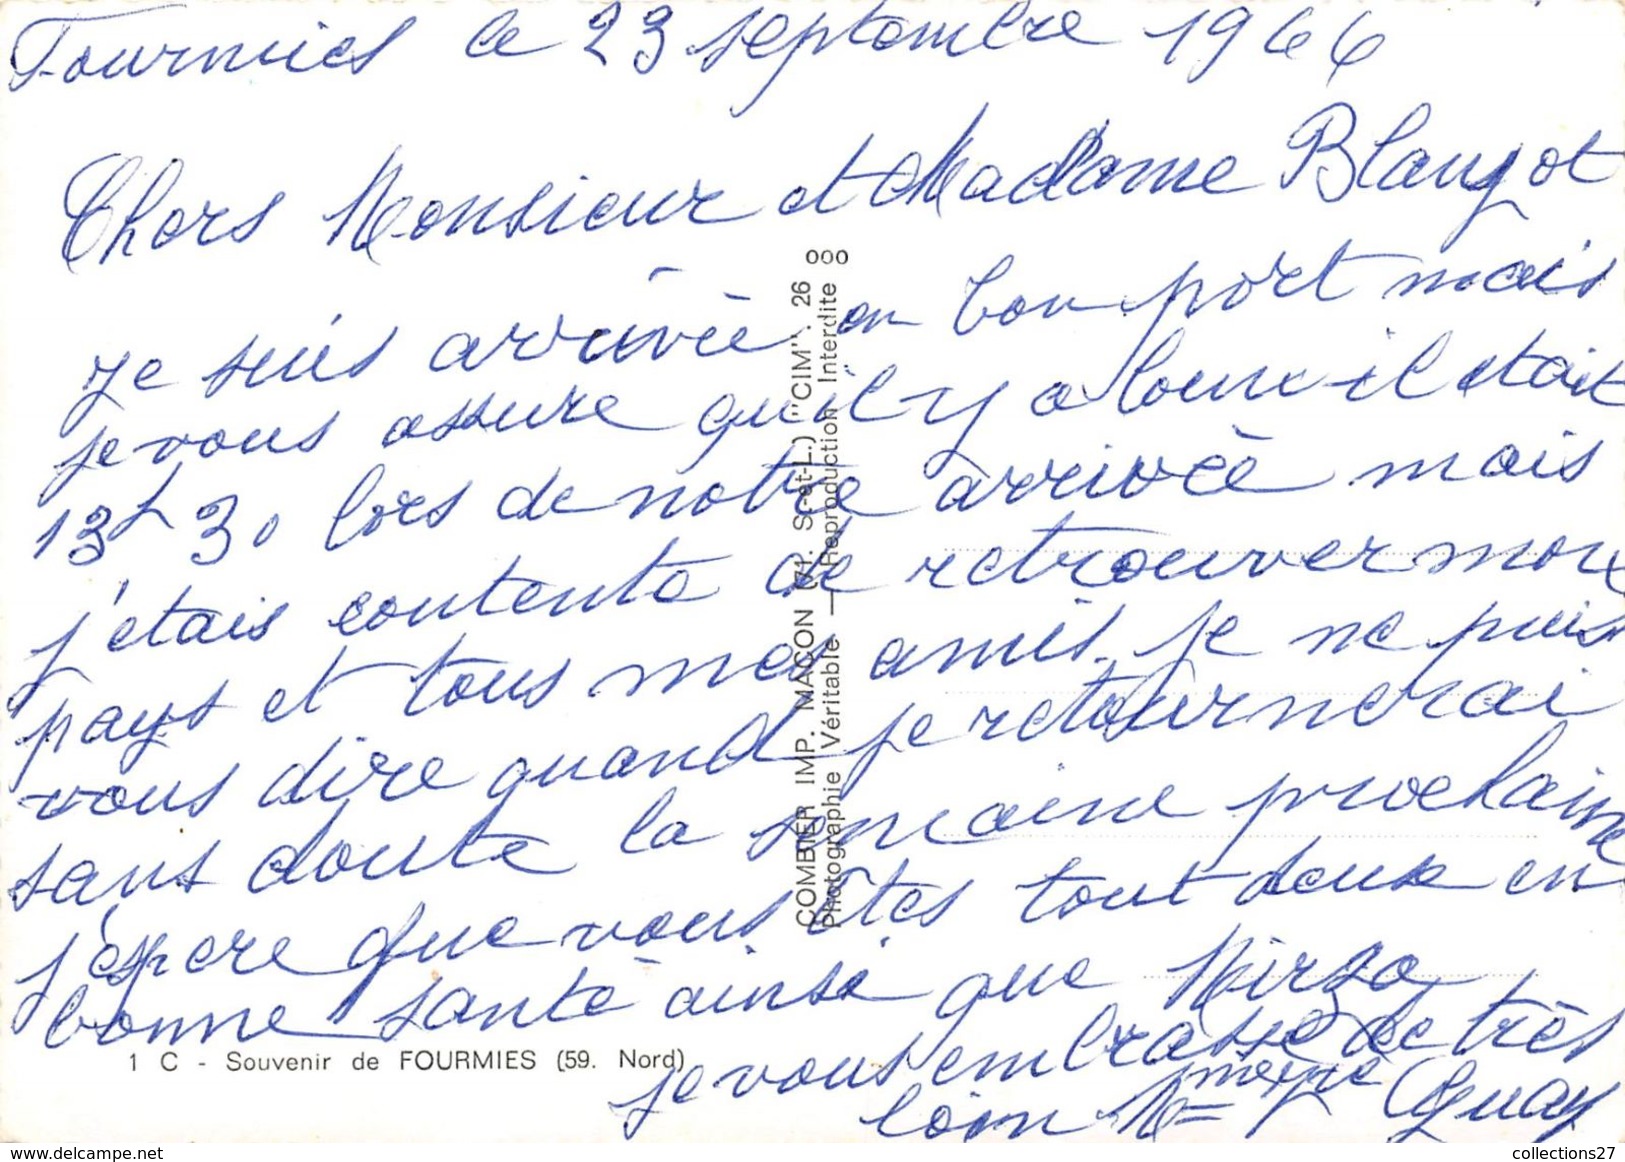 Fournies le 23 septembre 1966
Chers Monsieur et Madame Blangot
je suis arrivée en bon port mais
je vous assure qu'il y a loin il était
13h 30 lors de notre arrivée mais
j'etais contente de retrouver mon
pays et tous mes amis. je ne puis
vous dire quand je retournerai
sans doute la semaine prochaine
j'éspere que vous êtes tout deux en
bonne santé ainsi que Mirza
je vous embrasse de très
loin
Guay
1 C - Souvenir de FOURMIES (59. Nord)
COMBIER IMP. MACON (71. S.-et-L.) "CIM". 26
Photographie Véritable — Reproduction Interdite
collections27